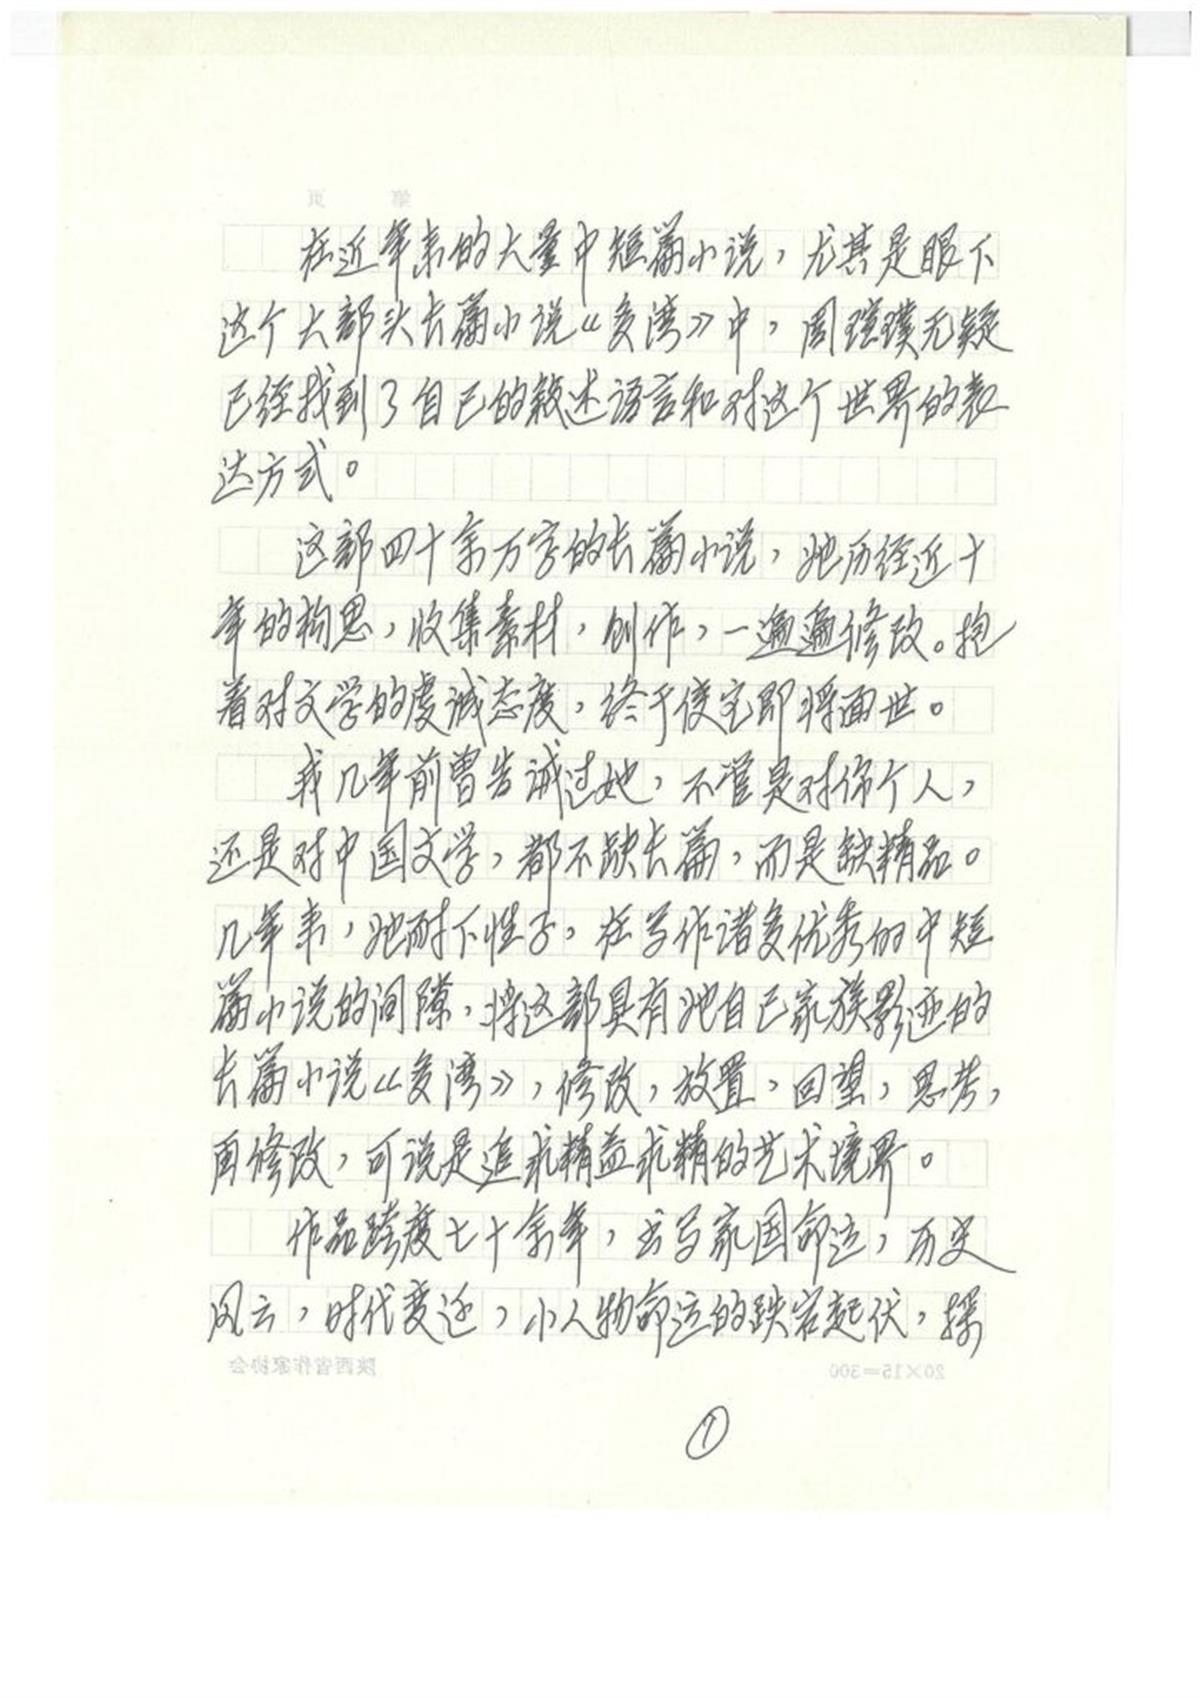 在近年来的大量中短篇小说，尤其是眼下
这个大部头长篇小说《多湾》中，周瑄璞无疑
已经找到了自己的叙述语言和对这个世界的表
达方式。
这部四十余万字的长篇小说，她历经近十
年的构思，收集素材，创作，一遍遍修改。抱
着对文学的虔诚态度，终于使它即将面世。
我几年前曾告诫过她，不管是对你个人，
还是对中国文学，都不缺长篇，而是缺精品。
几年来，她耐下性子，在写作诸多优秀的中短
篇小说的间隙，将这部具有她自己家族影迹的
长篇小说《多湾》，修改，放置，回望，思考，
再修改，可说是追求精益求精的艺术境界。
作品跨度七十余年，书写家国命运，历史
风云，时代变迁，小人物命运的跌宕起伏，探
陕西省作家协会
20×15=300
①